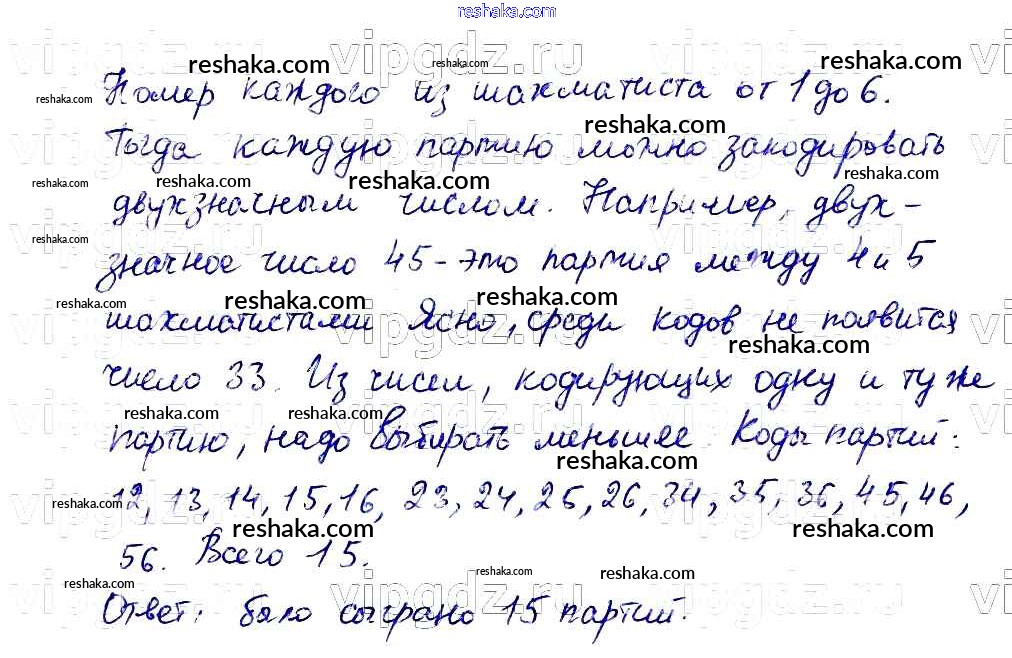 reshaka.com
Номер каждого из шахматиста от 1 до 6.
Тогда каждую партию можно закодировать
двухзначным числом. Например, двух-
значное число 45 - это партия между 4 и 5
шахматистами Ясно, среди кодов не появится
число 33. Из чисел, кодирующих одну и ту же
партию, надо выбирать меньшее. Коды партий:
12, 13, 14, 15, 16, 23, 24, 25, 26, 34, 35, 36, 45, 46,
56. Всего 15.
Ответ: было сыграно 15 партий.